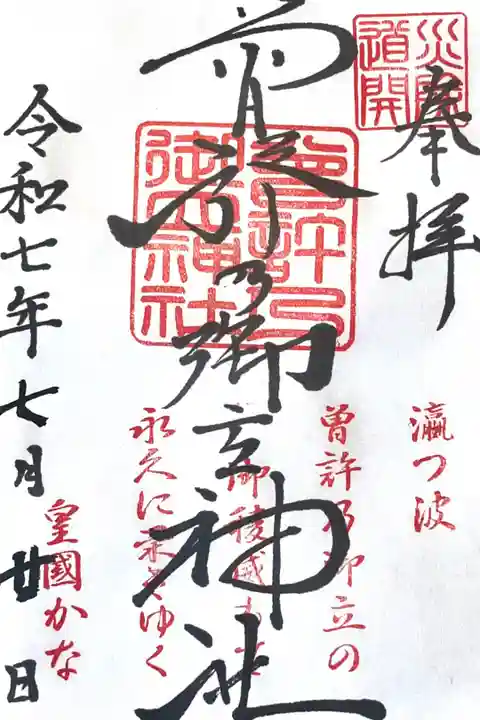 災除道開
奉拝
曽許乃御立神社
曽許乃御立神社
瀛つ波
曽許乃御立の
御稜威もて
永久に栄えゆく
皇國かな
令和七年七月廿日